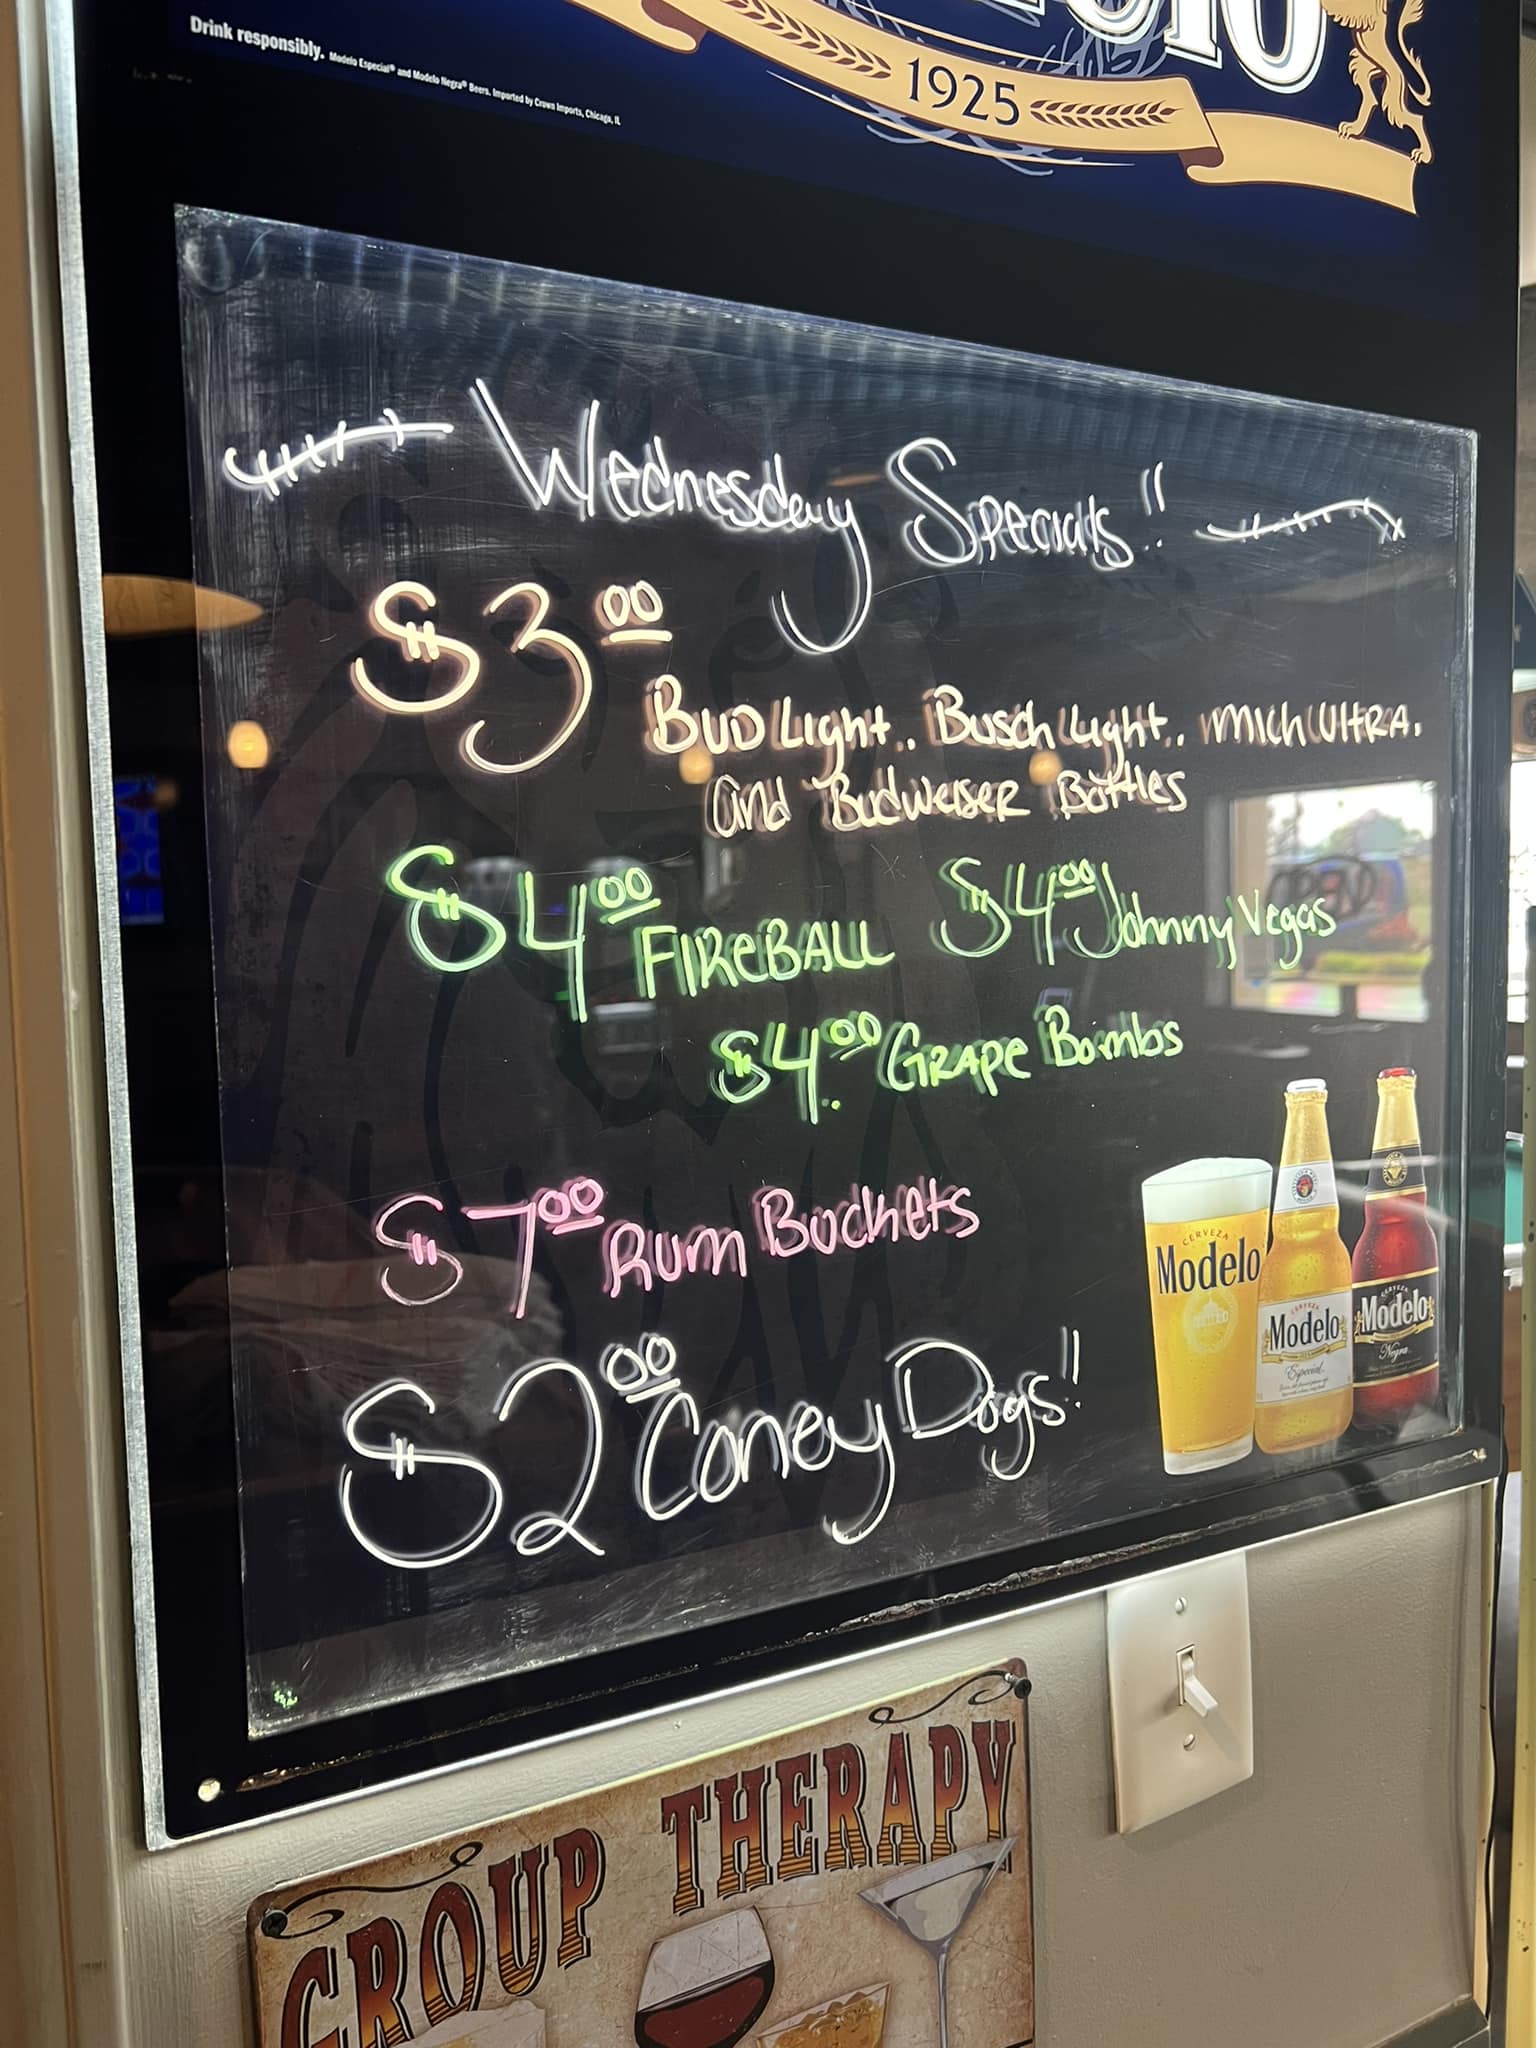 Drink responsibly. Modelo Especial® and Modelo Negra® Beers. Imported by Crown Imports, Chicago, IL
1925
Wednesday Specials!!
$3.00
Bud Light.. Busch Light.. Mich Ultra.
and Budweiser Bottles
$4.00 Fireball $4.00 Johnny Vegas
$4.00 Grape Bombs
$7.00 Rum Buckets
$2.00 Coney Dogs!!
CERVEZA
Modelo
CERVEZA
Modelo
Especial
CERVEZA
Modelo
Negra
GROUP THERAPY